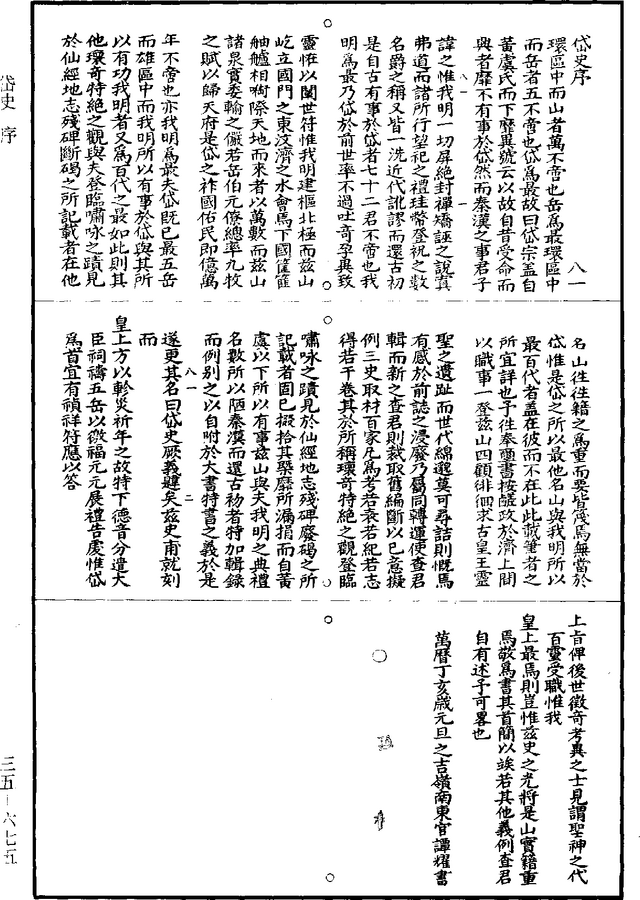 岱史序
環區中而山者萬不啻也岳為最環區中
而岳者五不啻也岱為最故曰岱宗蓋自
黃虞氏而下歷異號云以故自昔受命而
興者靡不有事於岱然而秦漢之事君子
諱之惟我明一切屏絕封禪矯誣之說真
弗道而諸所行望祀之禮珪幣登祝之數
名爵之稱又皆一洗近代訛謬而還古初
是自古有事於岱者七十二君不啻也我
明為最乃岱於前世率不過吐奇孕異致
靈怪以闡世符惟我明建樞北極而茲山
屹立國門之東汶濟之水會焉下國篚篚
舳艫相啣際天地而來者以萬數而茲山
諸泉實委輸之儼若岳伯元僚總率九牧
之賦以歸天府是岱之祚國佑民即億萬
年不啻也亦我明為最夫岱既已最五岳
而雄區中而我明所以有事於岱與其所
以有功我明者又為百代之最如此則其
他瓌奇特絕之觀與夫登臨嘯咏之蹟見
於仙經地志殘碑斷碣之所記載者在他
名山往往籍之為重而要皆蔑焉無當於
岱惟是岱之所以最他名山與我明所以
最百代者蓋在彼而不在此此載筆者之
所宜詳也予往奉璽書按鹺政於濟上間
以職事一登茲山四顧徘徊求古皇王靈
聖之遺趾而世代綿邈莫可尋詰則慨焉
有感於前誌之浸廢乃屬同轉運使查君
輯而新之查君則裁取舊編斷以己意擬
例三史取材百家凡為考若表若紀若志
得若干卷其於所稱瓌奇特絕之觀登臨
嘯咏之蹟見於仙經地志殘碑廢碣之所
記載者固已掇拾其槩靡所漏捐而自黃
虞以下所以有事茲山與夫我明之典禮
名數所以陋秦漢而還古初者特加輯錄
而例別之以自附於大書特書之義於是
遂更其名曰岱史厥義韙矣茲史甫就刻
而
皇上方以軫災祈年之故特下德音分遣大
臣祠禱五岳以徼福元元展禮告虔惟岱
為首宜有禎祥符應以答
上旨俾後世徵奇考異之士見謂聖神之代
百靈受職惟我
皇上最焉則豈惟茲史之光將是山實籍重
焉敬為書其首簡以竢若其他義例查君
自有述予可畧也
萬曆丁亥歲元旦之吉嶺南東官譚耀書
岱史 序
三五－六七五